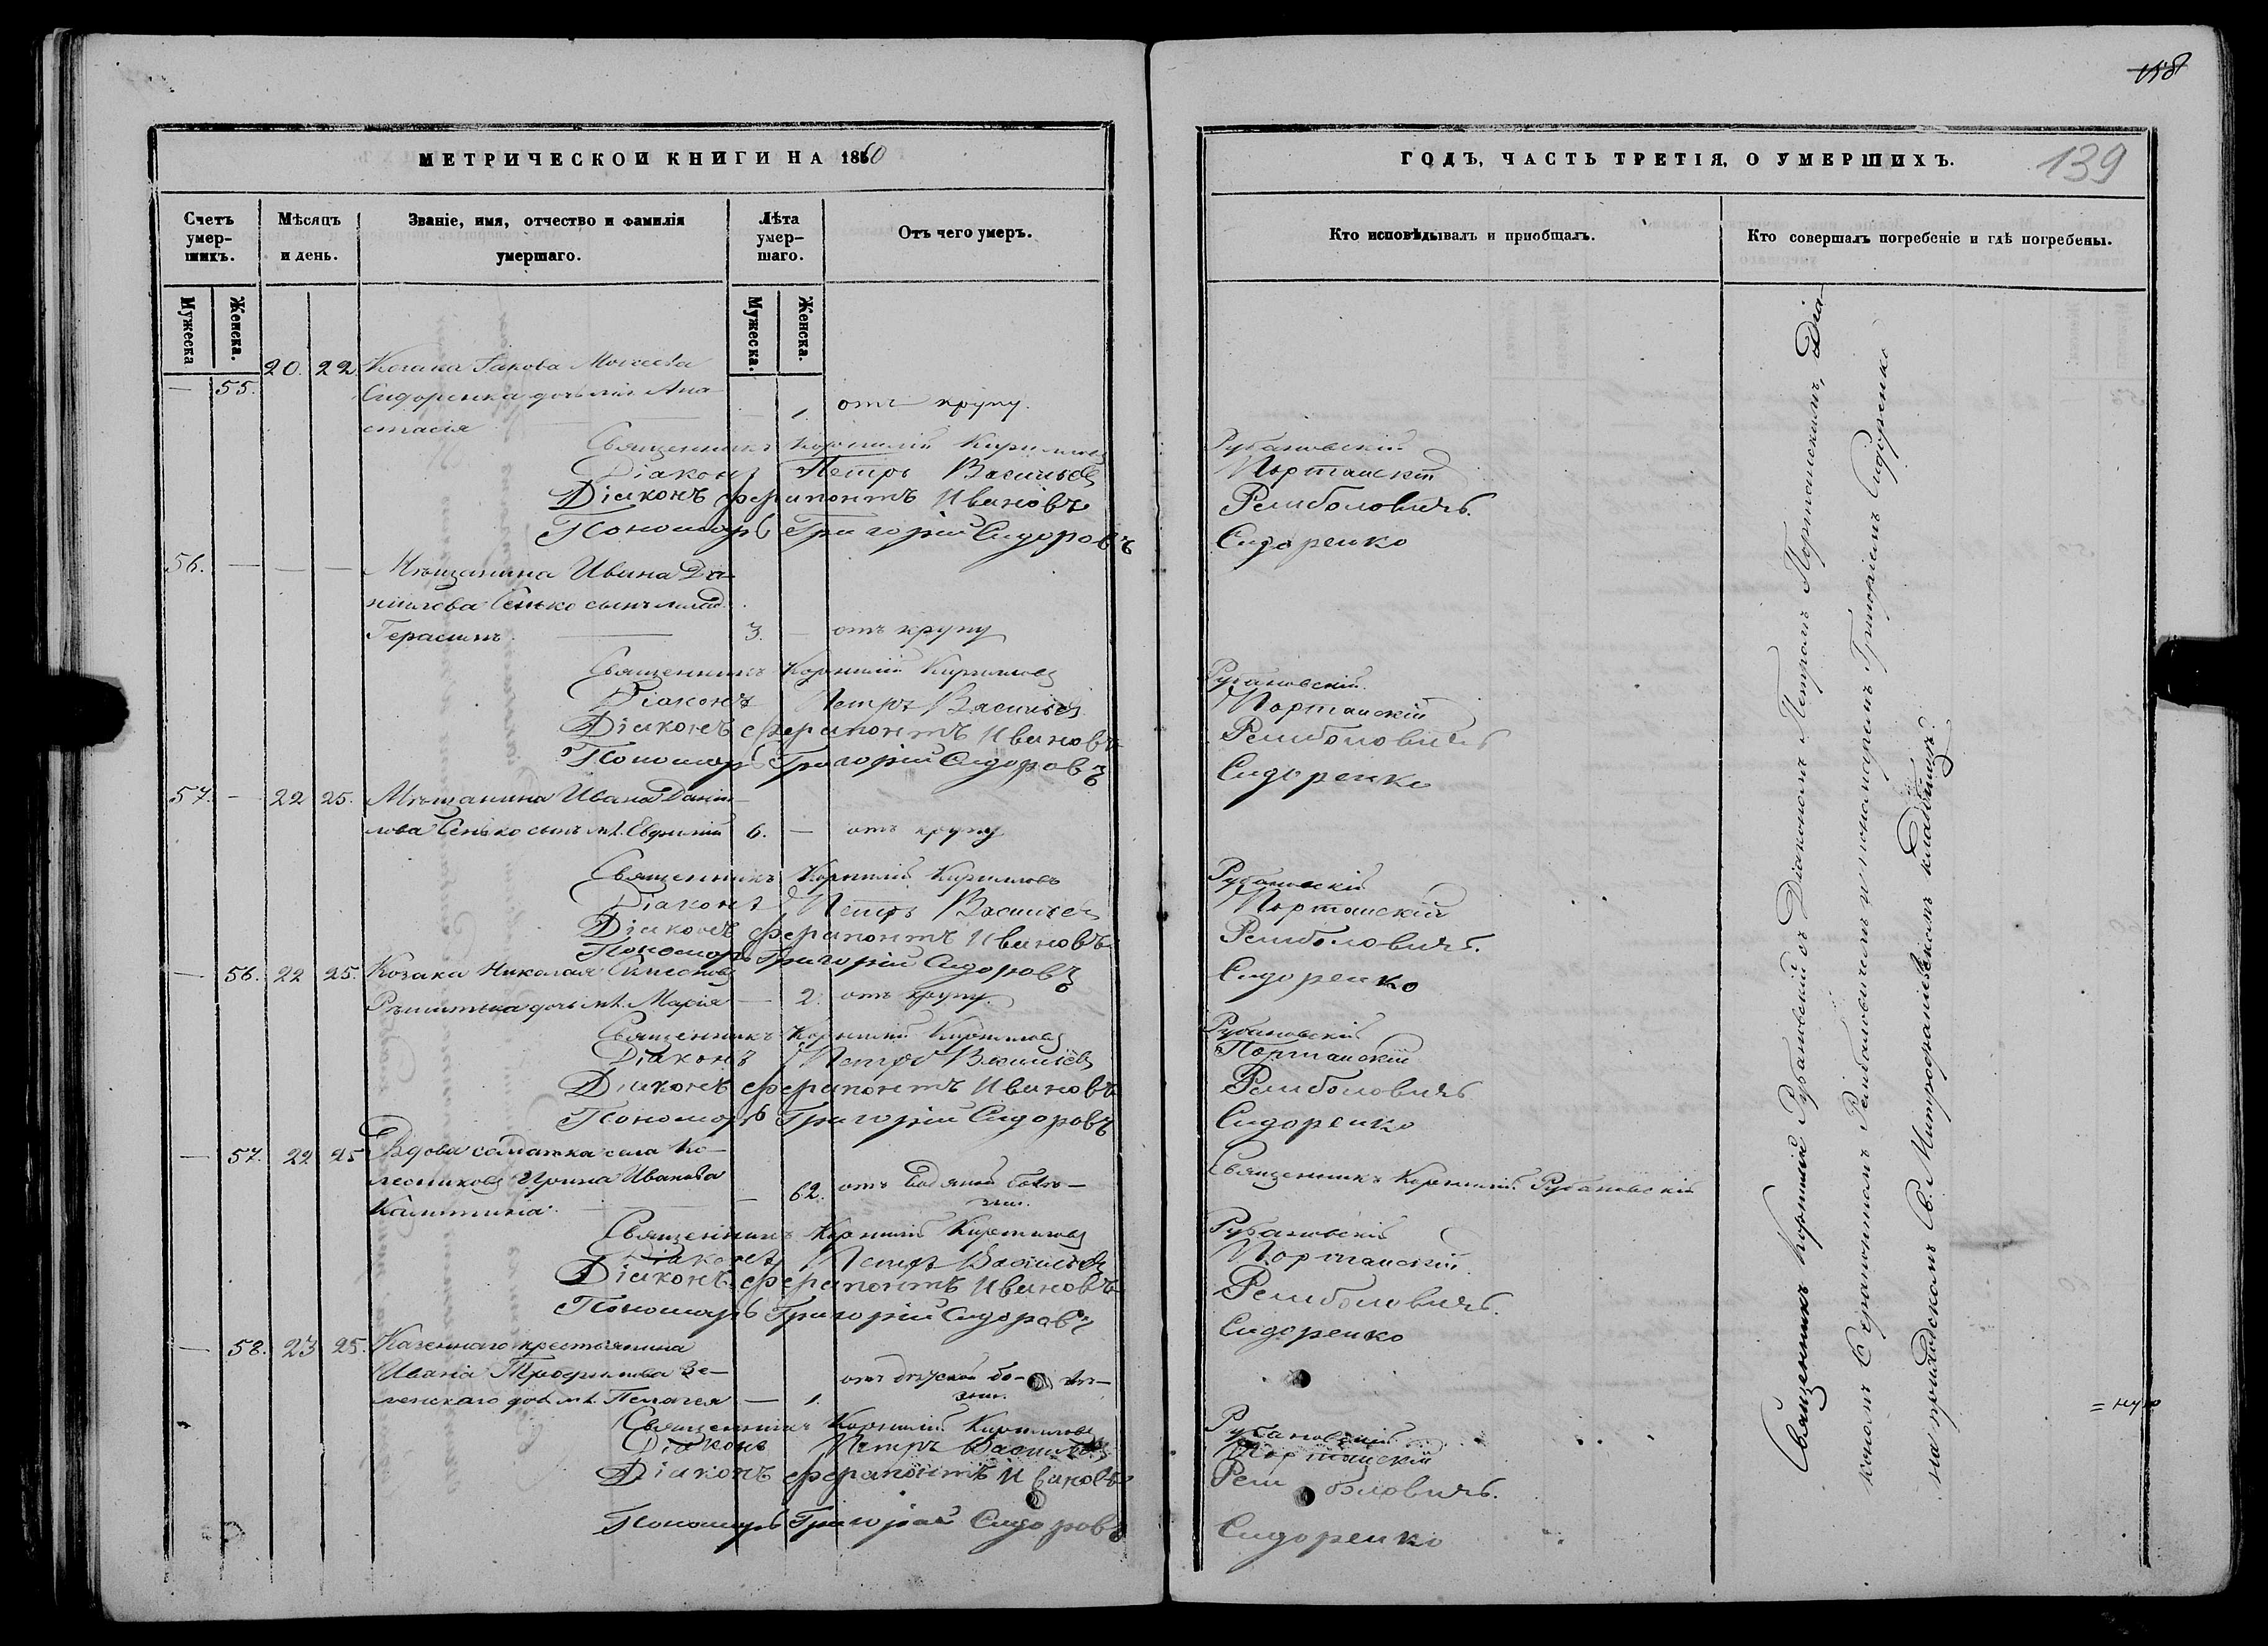 158
МЕТРИЧЕСКОИ КНИГИ НА 1860
ГОДЪ, ЧАСТЬ ТРЕТІЯ, О УМЕРШИХЪ.
139
Счетъ умер-шихъ.
Мѣсяцъ и день.
Званіе, имя, отчество и фамилія умершаго.
Лѣта умер-шаго.
Отъ чего умеръ.
Кто исповѣдывалъ и пріобщалъ.
Кто совершалъ погребеніе и гдѣ погребены.
Мужеска
Женска.
Мужеска.
Женска.
— 55. 20. 22 Козака Іакова Моисеева
Сидоренка дочь мл. Ана-
стасія — 1. отъ крупу.
Священникъ Корнилій Кирилловъ Рубановскій
Діаконъ Петръ Васильевъ Портанскій
Діаконъ Ферапонтъ Ивановъ Ремболовичъ.
Пономарь Григорій Сидоровъ Сидоренко
56. — — — Мѣщанина Ивана Да-
ніилова Сенько сынъ млад.
Герасимъ. 3. — отъ крупу
Священникъ Корнилій Кирилловъ Рубановскій.
Діаконъ Петръ Васильевъ Портанскій
Діаконъ Ферапонтъ Ивановъ Ремболовичъ
Пономарь Григорій Сидоровъ Сидоренко
57. — 22 25. Мѣщанина Ивана Даніи-
лова Сенько сынъ мл. Евфимій 6. — отъ крупу
Священникъ Корнилій Кирилловъ Рубановскій
Діаконъ Петръ Васильевъ Портанскій
Діаконъ Ферапонтъ Ивановъ Ремболовичъ.
Пономарь Григорій Сидоровъ Сидоренко
— 56. 22 25. Козака Николая
дочь мл. Марія — 2. отъ крупу.
Священникъ Корнилій Кирилловъ Рубановскій
Діаконъ Петръ Васильевъ Портанскій
Діаконъ Ферапонтъ Ивановъ Ремболовичъ
Пономарь Григорій Сидоровъ Сидоренко
— 57. 22 25 Вдова солдатка села Ко-
лесниковъ Ирина Иванова
— 62. отъ водяной болѣ-
зни.
Священникъ Корнилій Рубановскій
Священникъ Корнилій Кирилловъ Рубановскій
Діаконъ Петръ Васильевъ Портанскій.
Діаконъ Ферапонтъ Ивановъ Ремболовичъ.
Пономарь Григорій Сидоровъ Сидоренко
— 58. 23 25. Казеннаго крестьянина
Ивана Зе-
ленскаго дочь мл. Пелагея — 1. отъ дѣтской бо-лѣ-
зни.
Священникъ Корнилій Кирилловъ Рубановскій
Діаконъ Петръ Васильевъ Портанскій
Діаконъ Ферапонтъ Ивановъ Ремболовичъ.
Пономарь Григорій Сидоровъ Сидоренко
Священникъ Корнилій Рубановскій съ Діакономъ Петромъ Портанскимъ, Діа-
кономъ Ферапонтомъ Ремболовичемъ и пономаремъ Григоріемъ Сидоренко
на приходскомъ Св. Митрофаніевскомъ кладбищѣ.